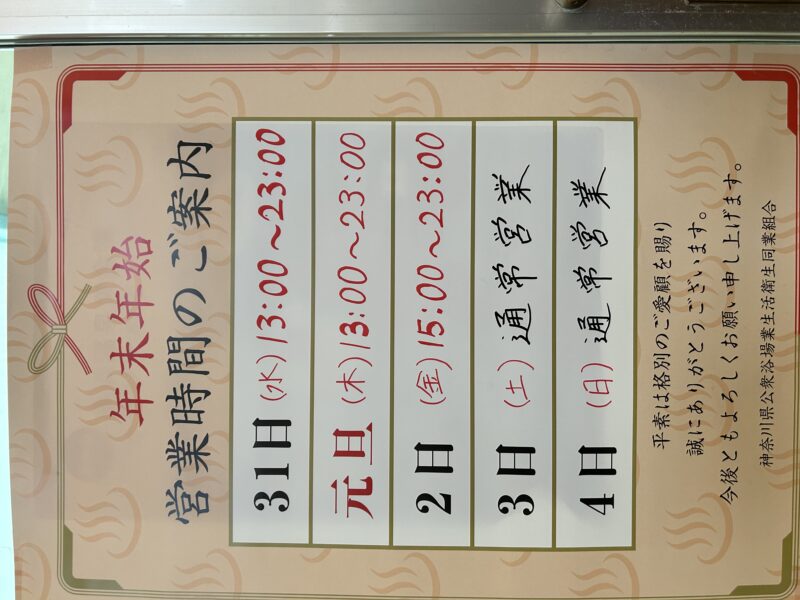 年末年始
営業時間のご案内
31日(水)13:00~23:00
元旦(木)13:00~23:00
2日(金)15:00~23:00
3日(土)通常営業
4日(日)通常営業
平素は格別のご愛顧を賜り
誠にありがとうございます。
今後ともよろしくお願い申し上げます。
神奈川県公衆浴場業生活衛生同業組合